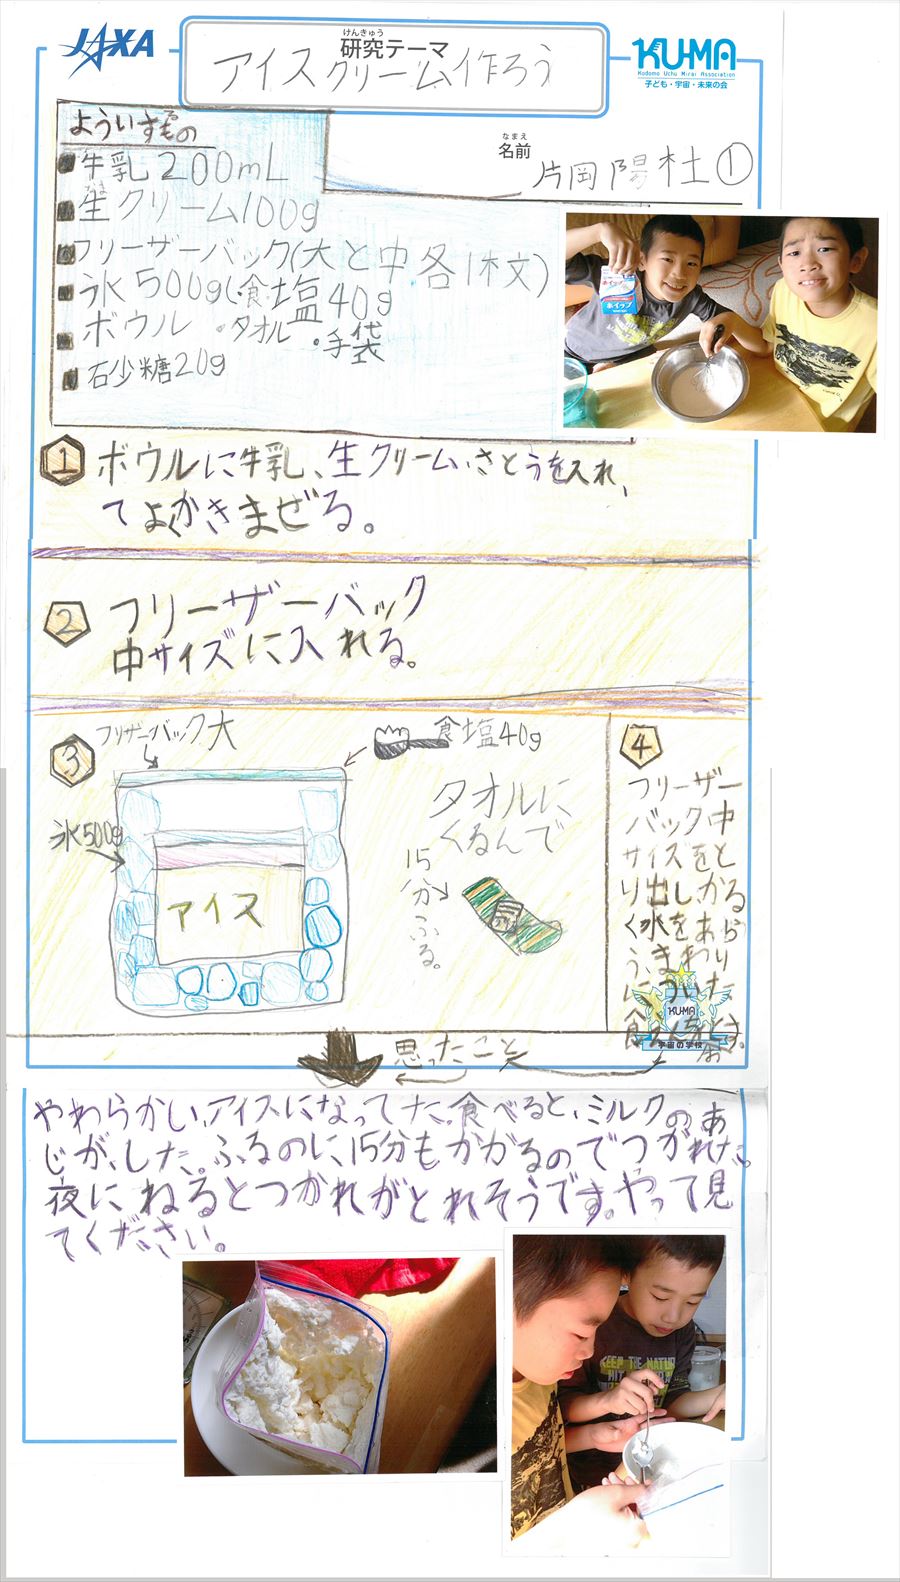 JAXA
けんきゅう
研究テーマ
アイスクリーム作ろう
KU-MA
Kodomo Uchu Mirai Association
子ども・宇宙・未来の会
なまえ
名前
片岡陽杜①
よういするもの
牛乳200mL
なま
生クリーム100g
フリーザーバック(大と中各1枚)
氷500g(食塩40g
ボウル ・タオル ・手袋
砂糖20g
ホイップ
① ボウルに牛乳、生クリーム、さとうを入れ、
てよくかきまぜる。
② フリーザーバック
中サイズに入れる。
③
フリザーバック大
食塩40g
氷500g
アイス
タオルに
くるんで
15分ふる。
④
フリーザー
バック中
サイズをと
り出し、かる
く水をあら
う、まわり
についた
食塩をとる。
KU-MA
宇宙の学校
思ったこと
やわらかい、アイスになってた。食べると、ミルクの、あ
じが、した。ふるのに、15分もかかるのでつかれた。
夜にねるとつかれがとれそうです。やって見
てください。
KEEP THE NATUR